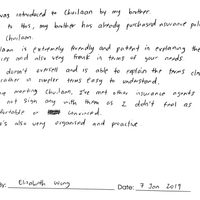 was introduced to Chuilaan by my brother.
to this, my brother has already purchased insurance pol
Chuilaan.
laan is extremely friendly and patient in explaining the
ies and also very frank in terms of your needs.
doesn't oversell and is able to explain the terms cle
rather in simpler terms easy to understand.
meeting Chuilaan, I've met other insurance agents
not sign any with them as I didn't feel as
fortable or convinced.
's also very organised and proactive.
by: Elizabeth Wong Date: 7 Jan 2019